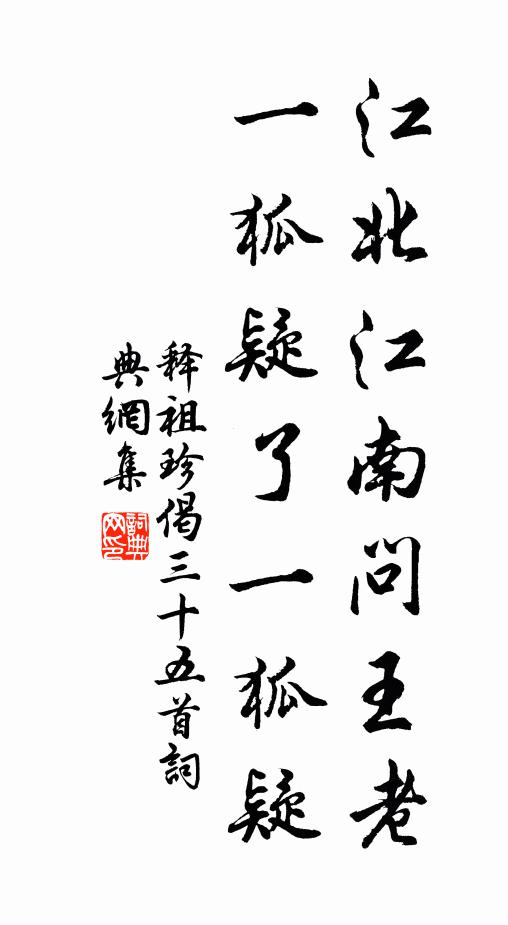 江北江南問王老
一狐疑了一狐疑
释祖珍偈三十五首詞
典網集
詞典
网印